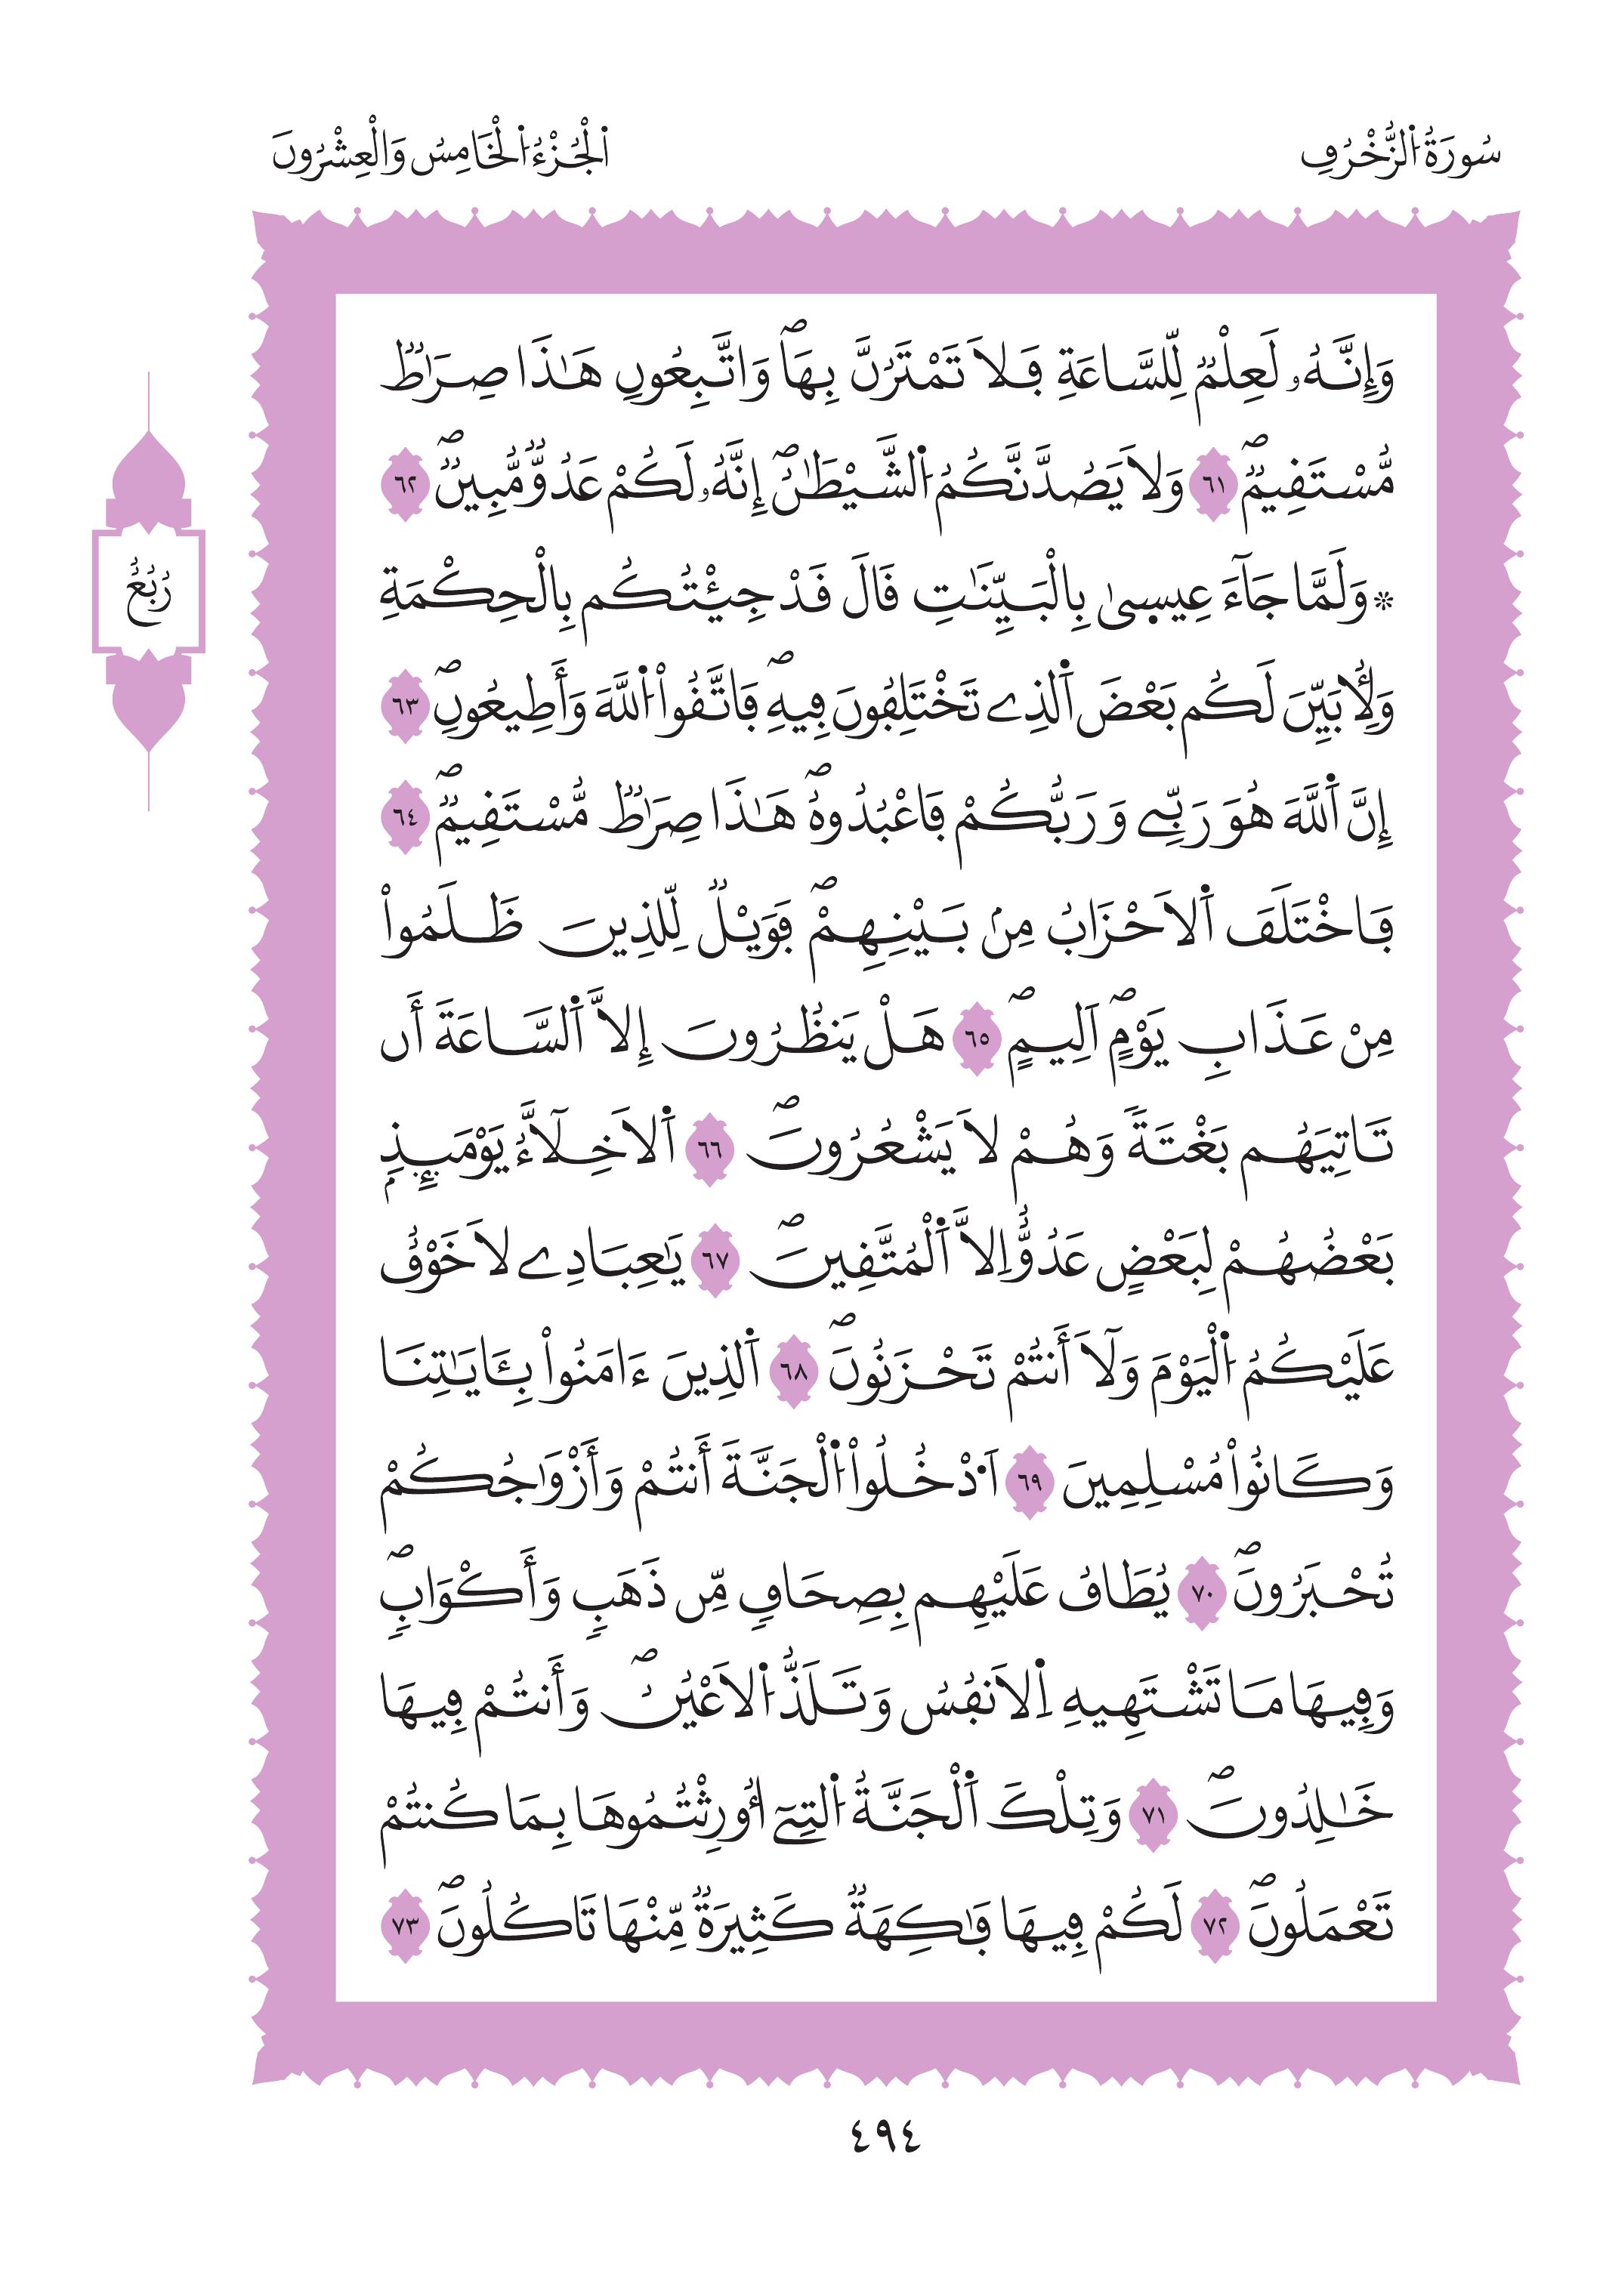 سُورَةُ اُ۬لزُّخْرُفِ
اُ۬لْجُزْءُ اُ۬لْخَامِسُ وَالْعِشْرُونَ
وَإِنَّهُۥ لَعِلْمٞ لِّلسَّاعَةِ فَلَا تَمْتَرُنَّ بِهَاۖ وَاتَّبِعُونِ هَٰذَا صِرَٰطٞ
مُّسْتَقِيمٞۖ ٦١ وَلَا يَصُدَّنَّكُمُ اُ۬لشَّيْطَٰنُۖ إِنَّهُۥ لَكُمْ عَدُوّٞ مُّبِينٞۖ ٦٢
۞ وَلَمَّا جَآءَ عِيسىٰ بِالْبَيِّنَٰتِ قَالَ قَدْ جِئْتُكُم بِالْحِكْمَةِ
وَلِأُبَيِّنَ لَكُم بَعْضَ اَ۬لذِے تَخْتَلِفُونَ فِيهِۖ فَاتَّقُواْ اُ۬للَّهَ وَأَطِيعُونِۖ ٦٣
إِنَّ اَ۬للَّهَ هُوَ رَبِّے وَرَبُّكُمْ فَاعْبُدُوهُۖ هَٰذَا صِرَٰطٞ مُّسْتَقِيمٞۖ ٦٤
فَاخْتَلَفَ اَ۬لَاحْزَابُ مِنۢ بَيْنِهِمْۖ فَوَيْلٞ لِّلذِينَ ظَلَمُواْ
مِنْ عَذَابِ يَوْمٍۖ اَلِيمٍۖ ٦٥ هَلْ يَنظُرُونَ إِلَّا اَ۬لسَّاعَةَ أَن
تَاتِيَهُم بَغْتَةٗ وَهُمْ لَا يَشْعُرُونَۖ ٦٦ اَ۬لَاخِلَّآءُ يَوْمَئِذِۢ
بَعْضُهُمْ لِبَعْضٍ عَدُوٌّ اِلَّا اَ۬لْمُتَّقِينَۖ ٦٧ يَٰعِبَادِے لَا خَوْفٌ
عَلَيْكُمُ اُ۬لْيَوْمَ وَلَآ أَنتُمْ تَحْزَنُونَۖ ٦٨ اَ۬لذِينَ ءَامَنُواْ بِـَٔايَٰتِنَا
وَكَانُواْ مُسْلِمِينَ ٦٩ اَ۟دْخُلُواْ اُ۬لْجَنَّةَ أَنتُمْ وَأَزْوَٰجُكُمْ
تُحْبَرُونَۖ ٧٠ يُطَافُ عَلَيْهِم بِصِحَافٖ مِّن ذَهَبٖ وَأَكْوَابٖۖ
وَفِيهَا مَا تَشْتَهِيهِ اِ۬لَانفُسُ وَتَلَذُّ اُ۬لَاعْيُنُۖ وَأَنتُمْ فِيهَا
خَٰلِدُونَۖ ٧١ وَتِلْكَ اَ۬لْجَنَّةُ اُ۬لتِےٓ أُورِثْتُمُوهَا بِمَا كُنتُمْ
تَعْمَلُونَۖ ٧٢ لَكُمْ فِيهَا فَٰكِهَةٞ كَثِيرَةٞ مِّنْهَا تَاكُلُونَۖ ٧٣
رُبُعُ
٤٩٤